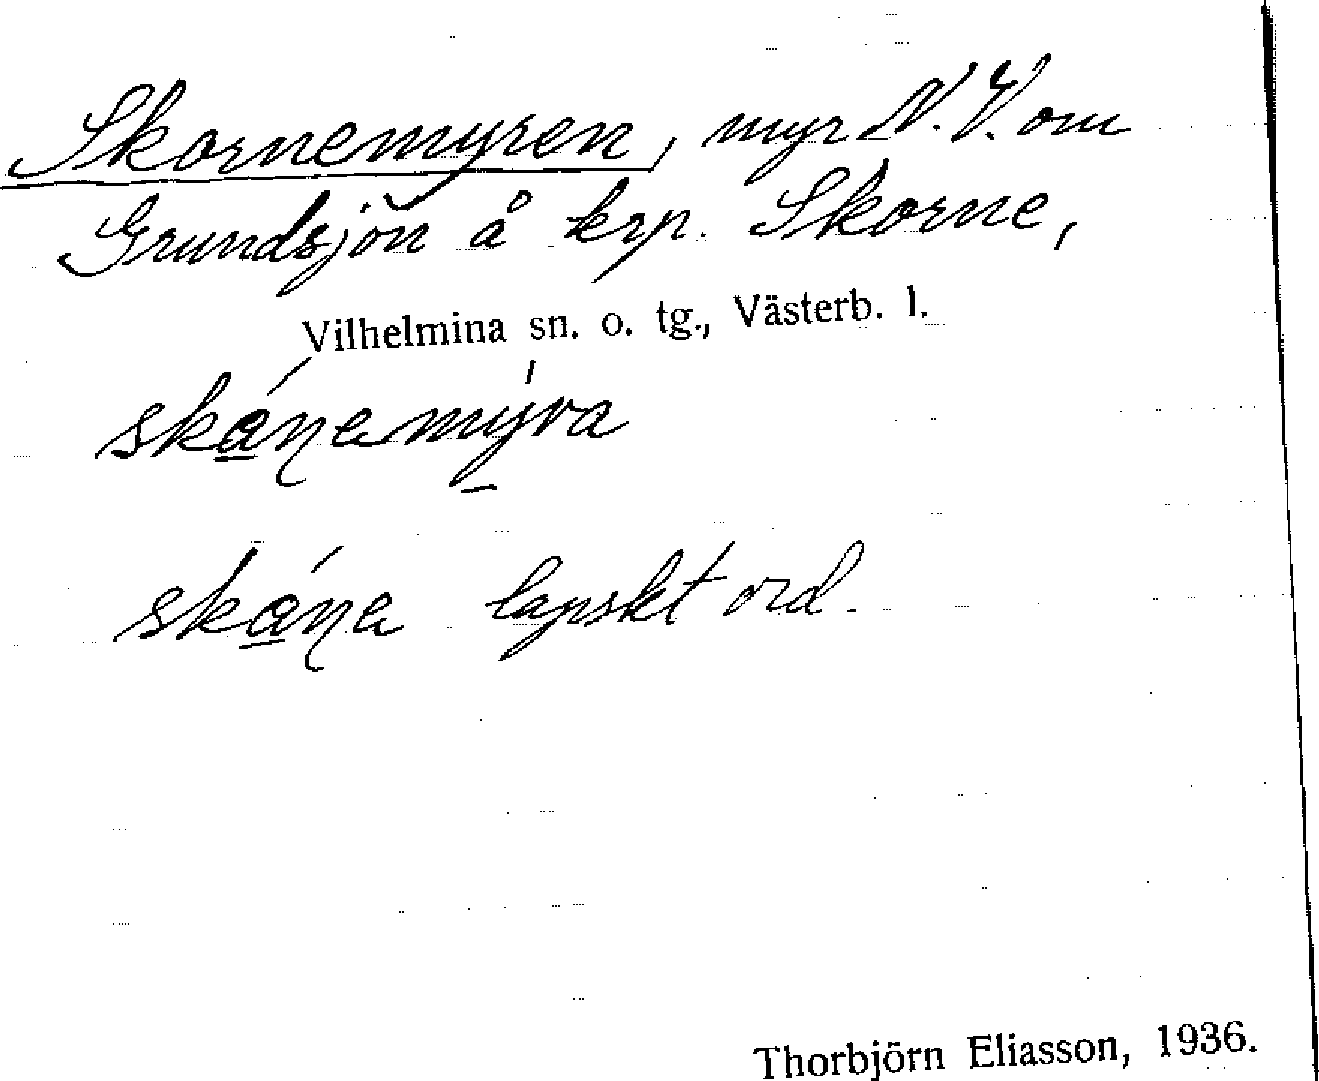 Skornemyren, myr N.V. om
Grundsjön å krp. Skorne,
Vilhelmina sn. o. tg., Västerb. l.
skáṇamýra
skáṇa lapskt ord.
Thorbjörn Eliasson, 1936.